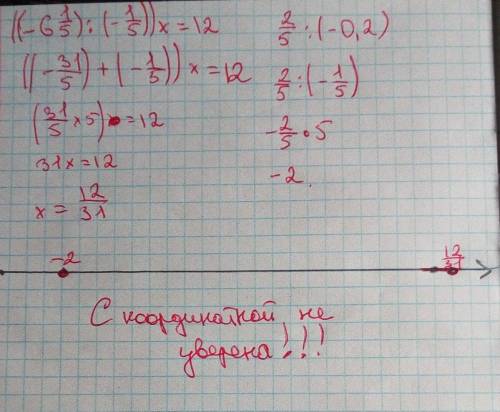 ((-6 1/5) : (-1/5)) x = 12
((-31/5) + (-1/5)) x = 12
(31/5 × 5) x = 12
31x = 12
x = 12/31
2/5 : (-0,2)
2/5 : (-1/5)
-2/5 • 5
-2.
-2 12/31
С координатной не
уверена!!!